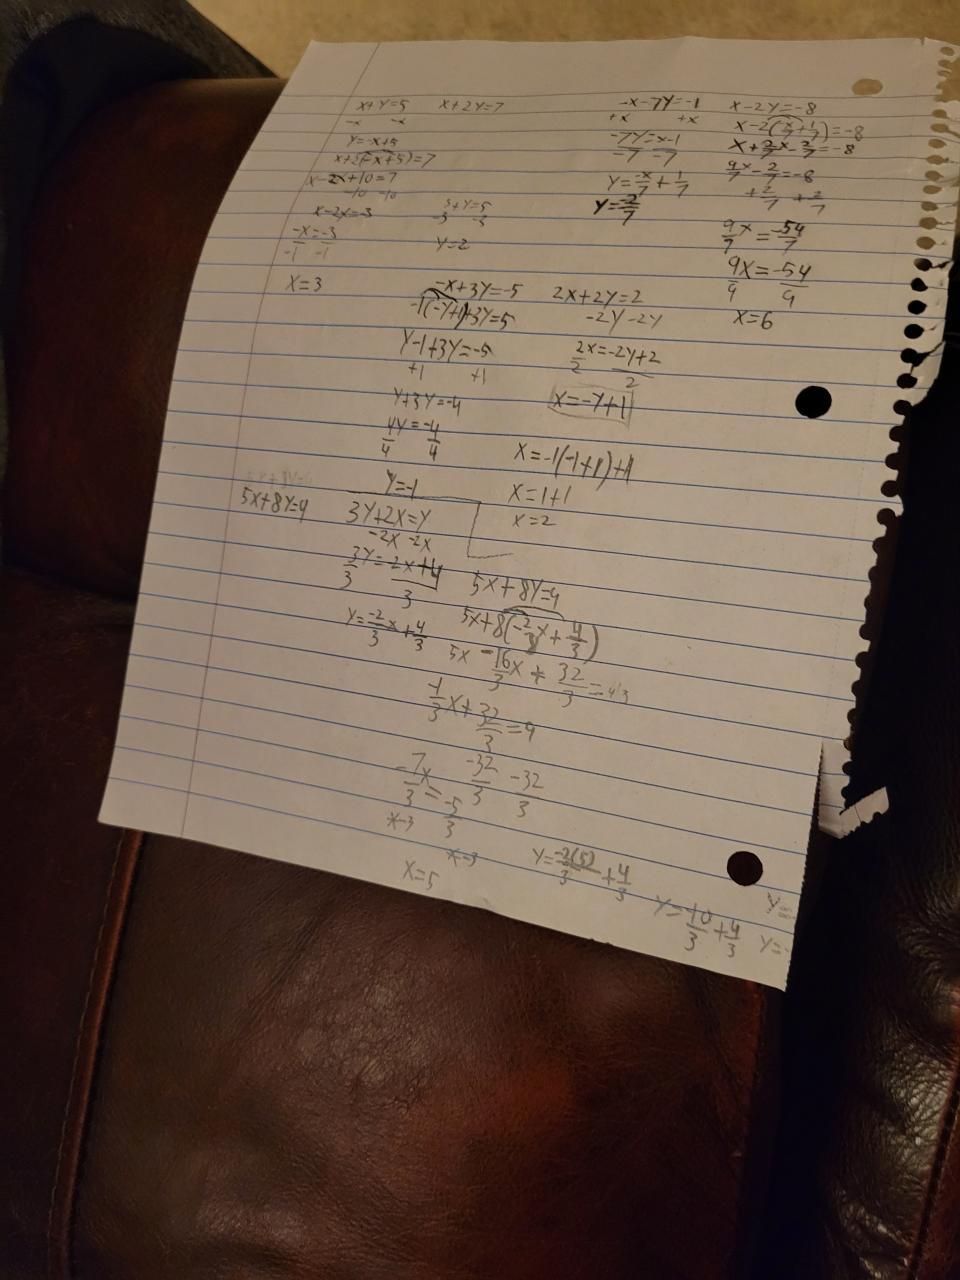 x+y=5 x+2y=7
-x -x
y=-x+5
x+2(-x+5)=7
x-2x+10=7
-10 -10
x-2x=-3
-x=-3
-1 -1
x=3
5+y=5
-3 -3
y=2
-x-7y=-1
+x +x
-7y=x-1
-7 -7
y=-x/7+1/7
y=-2/7
x-2y=-8
x-2(-x/7+1/7)=-8
x+2/7x-2/7=-8
9/7x-2/7=-8
+2/7 +2/7
9/7x=-54/7
9x=-54
9 9
x=6
-x+3y=-5
-1(-y+1)+3y=5
y-1+3y=-5
+1 +1
y+3y=-4
4y=-4
4 4
y=-1
2x+2y=2
-2y -2y
2x=-2y+2
2 2
x=-y+1
x=-1(-1+1)+1
x=1+1
x=2
5x+8y=4
3y+2x=y
-2x -2x
3y=2x+4
3 3
y=-2/3x+4/3
5x+8y=4
5x+8(-2/3x+4/3)
5x-16/3x+32/3=4/3
-1/3x+32/3=9
-32/3 -32/3
-7/3x=-5/3
*-3 *-3
x=5
y=-2(5)/3+4/3
y=-10/3+4/3
y=
y=